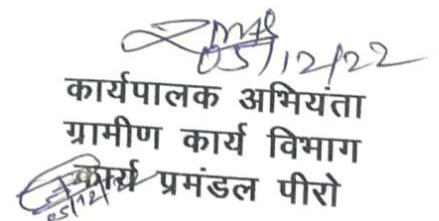 05/12/22
कार्यपालक अभियंता
ग्रामीण कार्य विभाग
कार्य प्रमंडल पीरो
05/12/22